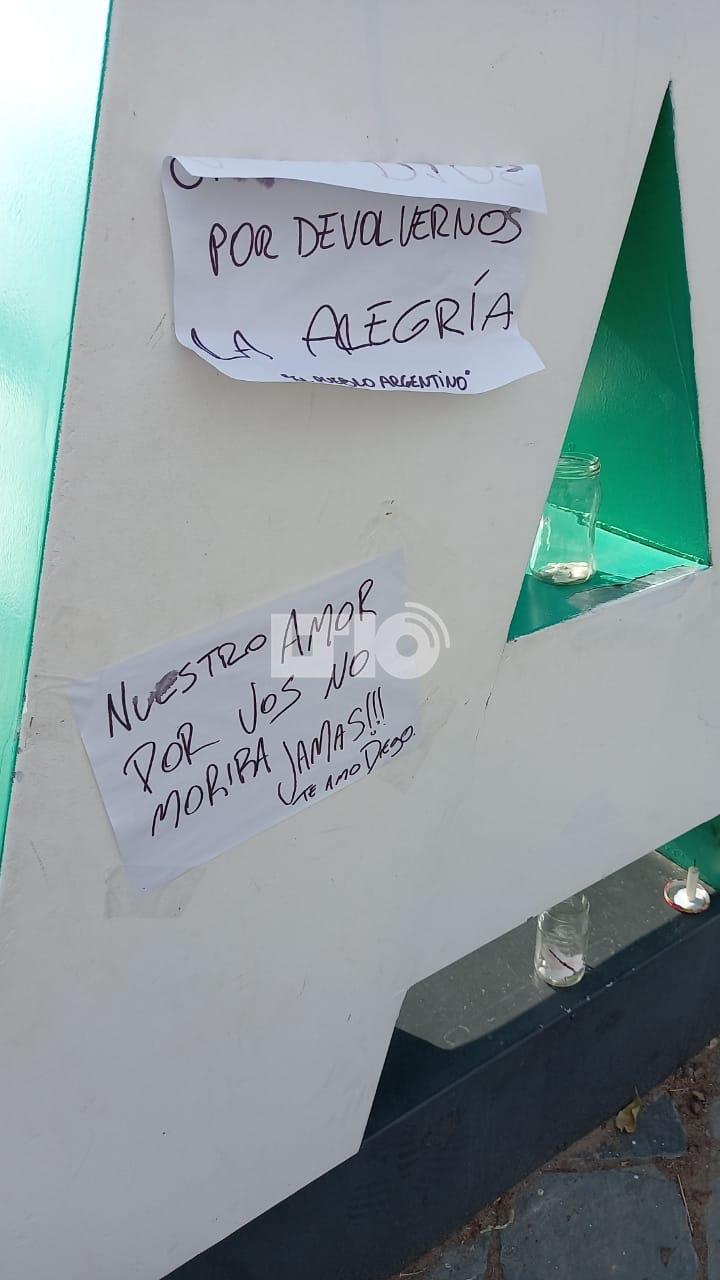 POR DEVOLVERNOS
LA ALEGRÍA
"EL PUEBLO ARGENTINO"
NUESTRO AMOR
POR VOS NO
MORIRA JAMAS!!!
TE AMO DIEGO.